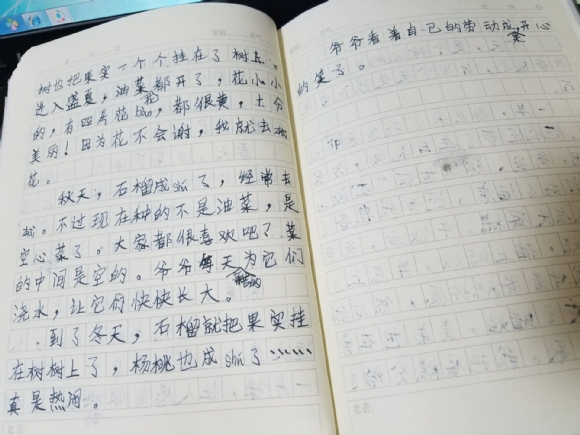 树也把果实一个个挂在了树上。
进入盛夏，油菜都开了，花小小
的，有四片花bàn，都很黄，十分
美丽！因为花不会谢，我就去
花。
秋天，石榴成shú了，经常去
。不过现在种的不是油菜，是
空心菜了。大家都很喜欢吧？菜
的中间是空的。爷爷每天为它们
浇水，让它们快快长大。
到了冬天，石榴就把果实挂
在树树上了，杨桃也成shú了……
真是热闹。
爷爷看着自己的劳动成果开心
的笑了。